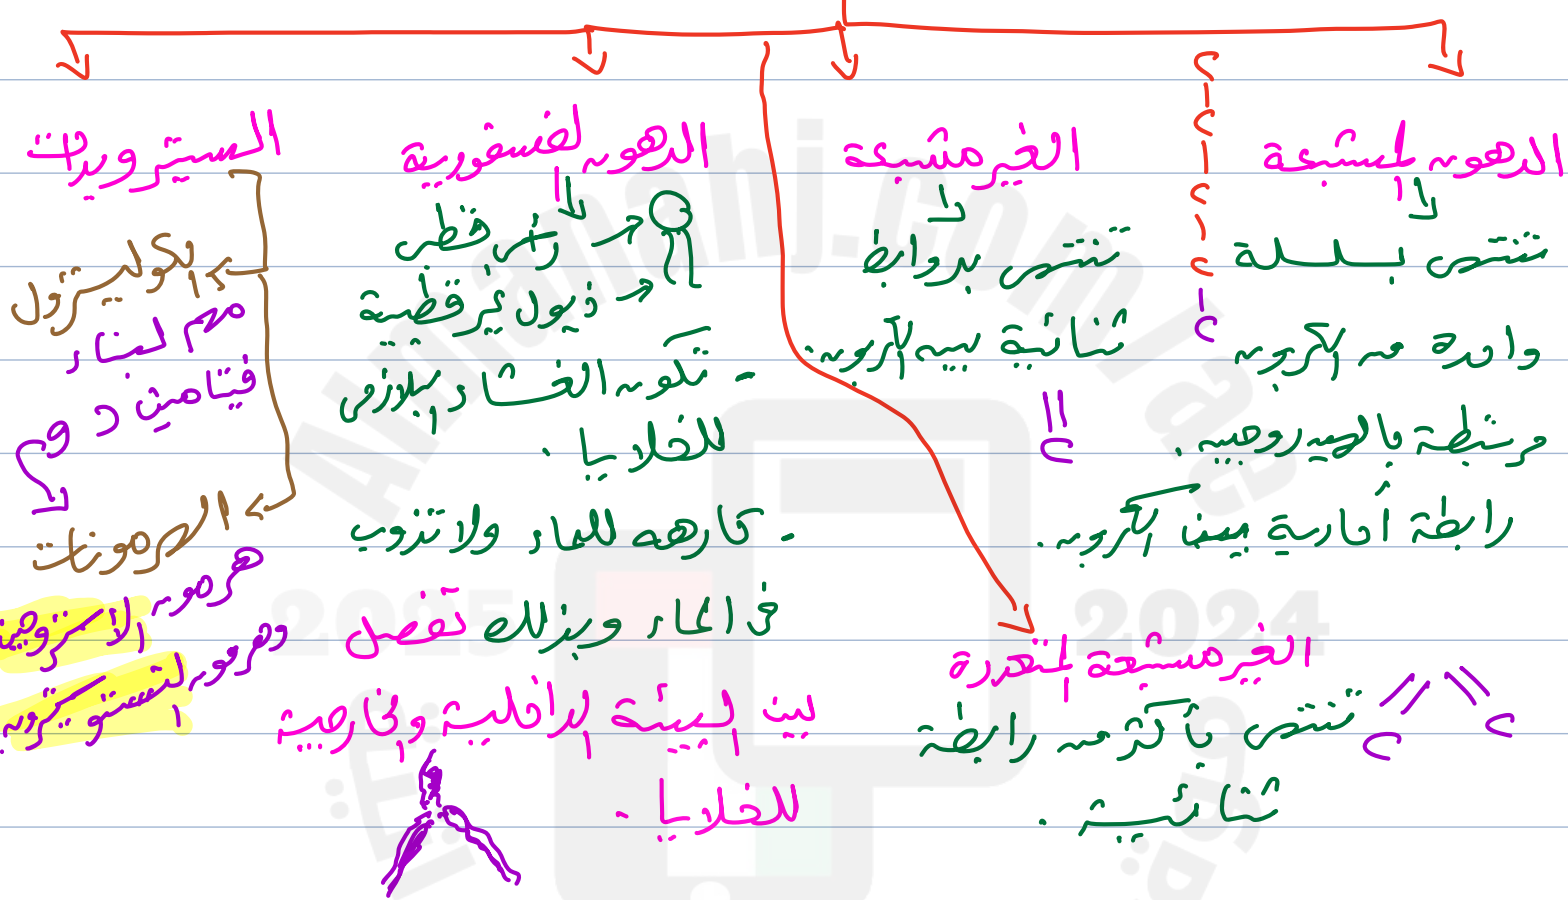 الدهون المشبعة
تختص بسلسلة
واحدة من الكربون
مرتبطة بالهيدروجين.
رابطة أحادية بين الكربون.
C
C
C
C
C
الغير مشبعة
تختص بروابط
ثنائية بين الكربون.
C
الغير مشبعة المتعددة
تختص بأكثر من رابطة
ثنائية.
C
C
الدهون الفسفورية
رأس قطبي
ذيول غير قطبية
- تكون الغشاء البلازمي
للخلايا.
- كارهه للماء ولا تذوب
في الماء وبذلك تفصل
بين البيئة الداخلية والخارجية
للخلايا.
الستيرويدات
الكوليسترول
مهم لبناء
فيتامين د و
الهرمونات
هرمون الاستروجين
وهرمون التستوستيرون
Almanahj.com/ae
2024
2025